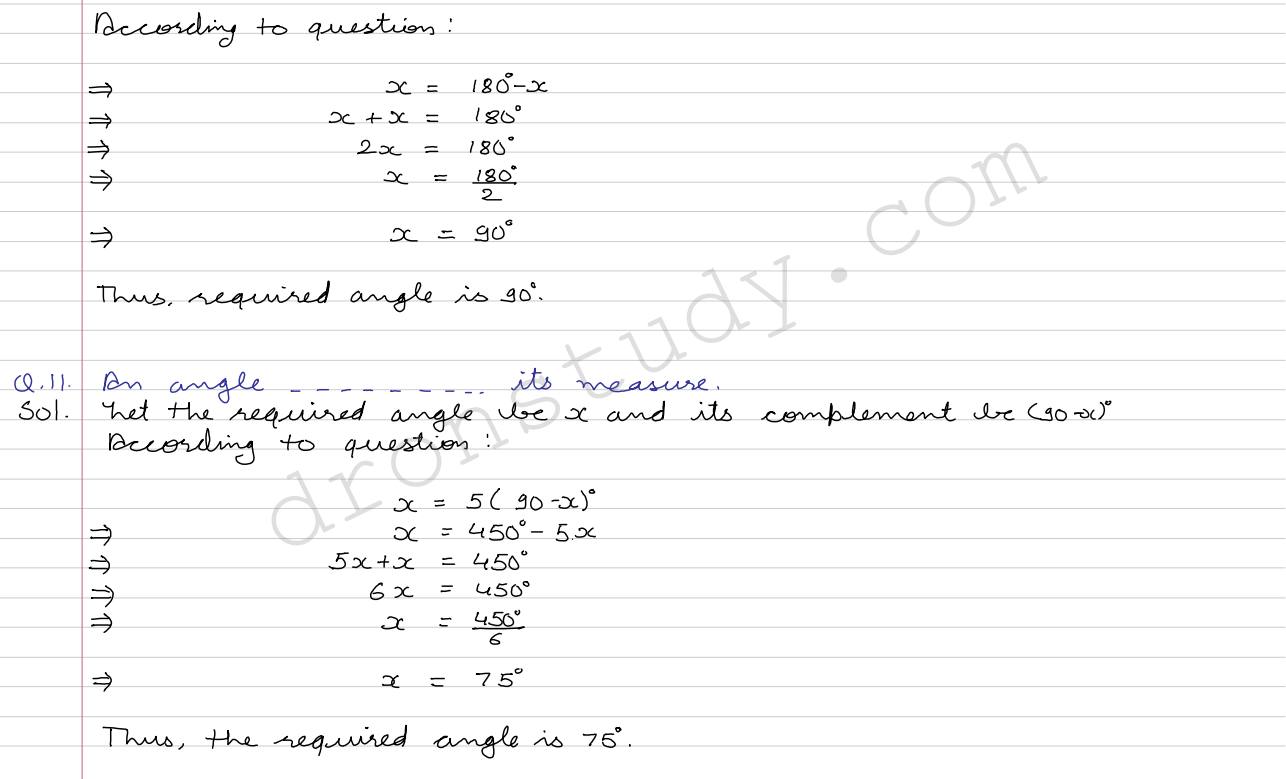 According to question:
⇒ x = 180°-x
⇒ x + x = 180°
⇒ 2x = 180°
⇒ x = 180°/2
⇒ x = 90°
Thus, required angle is 90°.
Q.11. An angle _ _ _ _ _ _ _ _ .. its measure.
Sol. Let the required angle be x and its complement be (90-x)°
According to question:
x = 5(90-x)°
⇒ x = 450° - 5x
⇒ 5x+x = 450°
⇒ 6x = 450°
⇒ x = 450°/6
⇒ x = 75°
Thus, the required angle is 75°.
dronstudy.com